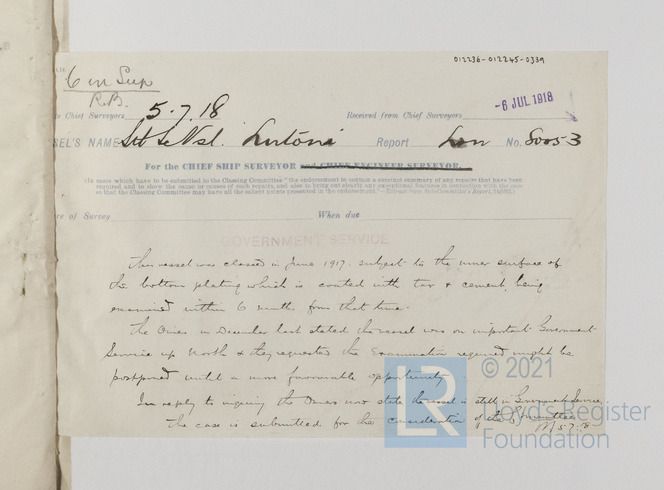 012236-012245-0339
6 in Sup
R.B.
Chief Surveyors 5.7.18 Received from Chief Surveyors -6 JUL 1918
SEL'S NAME Report Lon No. 80053
For the CHIEF SHIP SURVEYOR and CHIEF ENGINEER SURVEYOR.
(In cases which have to be submitted to the Classing Committee "the endorsement to contain a succinct summary of any repairs that have been
required and to show the cause or causes of such repairs, and also to bring out clearly any exceptional features in connection with the case
so that the Classing Committee may have all the salient points presented in the endorsement."
of Survey When due
GOVERNMENT SERVICE
This vessel was classed in June 1917 subject to the inner surface of
the bottom plating which is coated with tar & cement, being
examined within 6 months from that time.
The Owners in December last stated the vessel was on important Government
Service up North & they requested the Examination required might be
postponed until a more favourable opportunity.
In reply to inquiry the Owners now state the vessel is still in Government Service.
The case is submitted for the consideration of the Committee
5.7.18
© 2021
LR
Lloyd's Register
Foundation